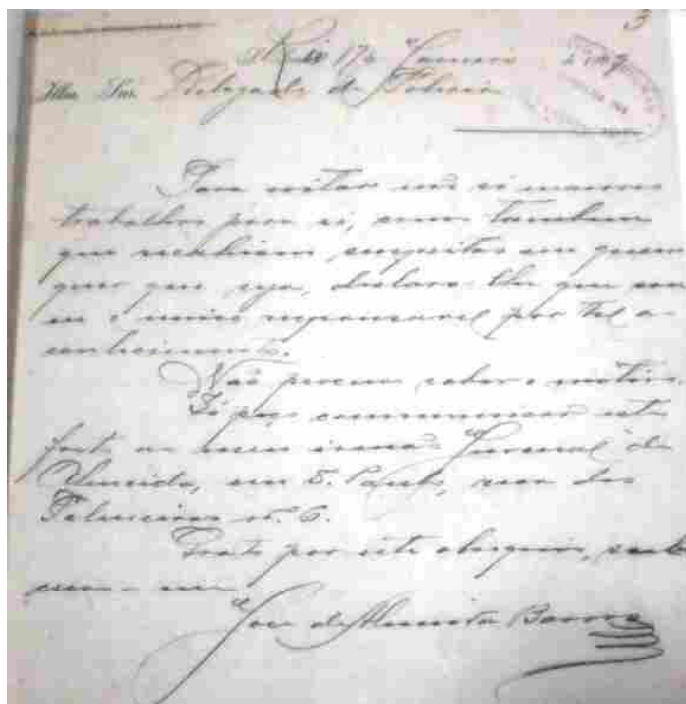 3
Rio 17 de Janeiro de 19
Illm. Snr. Delegado de Policia
Para evitar não só maiores
trabalhos para si, como tambem
que recahiam suspeitas em quem
quer que seja, declaro-lhe que sou
eu o unico responsavel por tal a-
contecimento.
Não procure saber o motivo.
Só peço communicar este
facto ao meu irmão Juvenal de
Almeida, em S. Paulo, rua dos
n. 6.
Grato por este obsequio, subs-
crevo-me
José de Almeida Barros